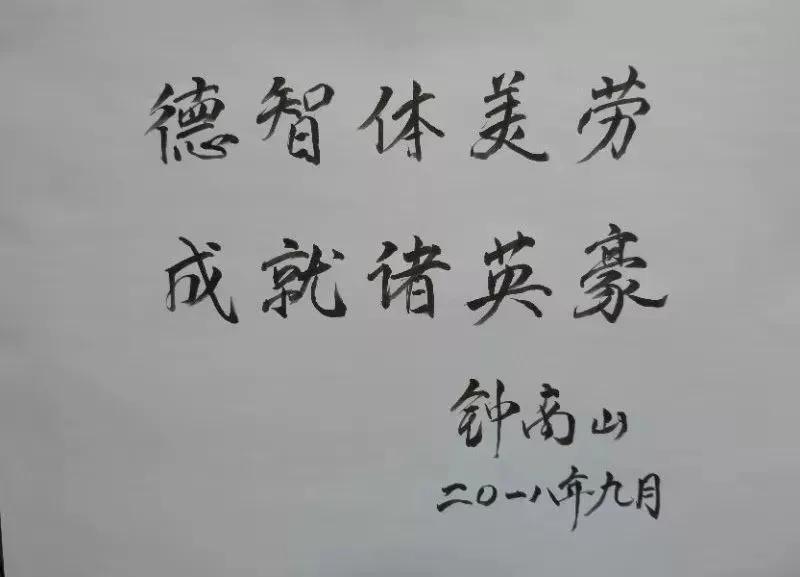 德智体美劳
成就诸英豪
钟商山
二〇一八年九月